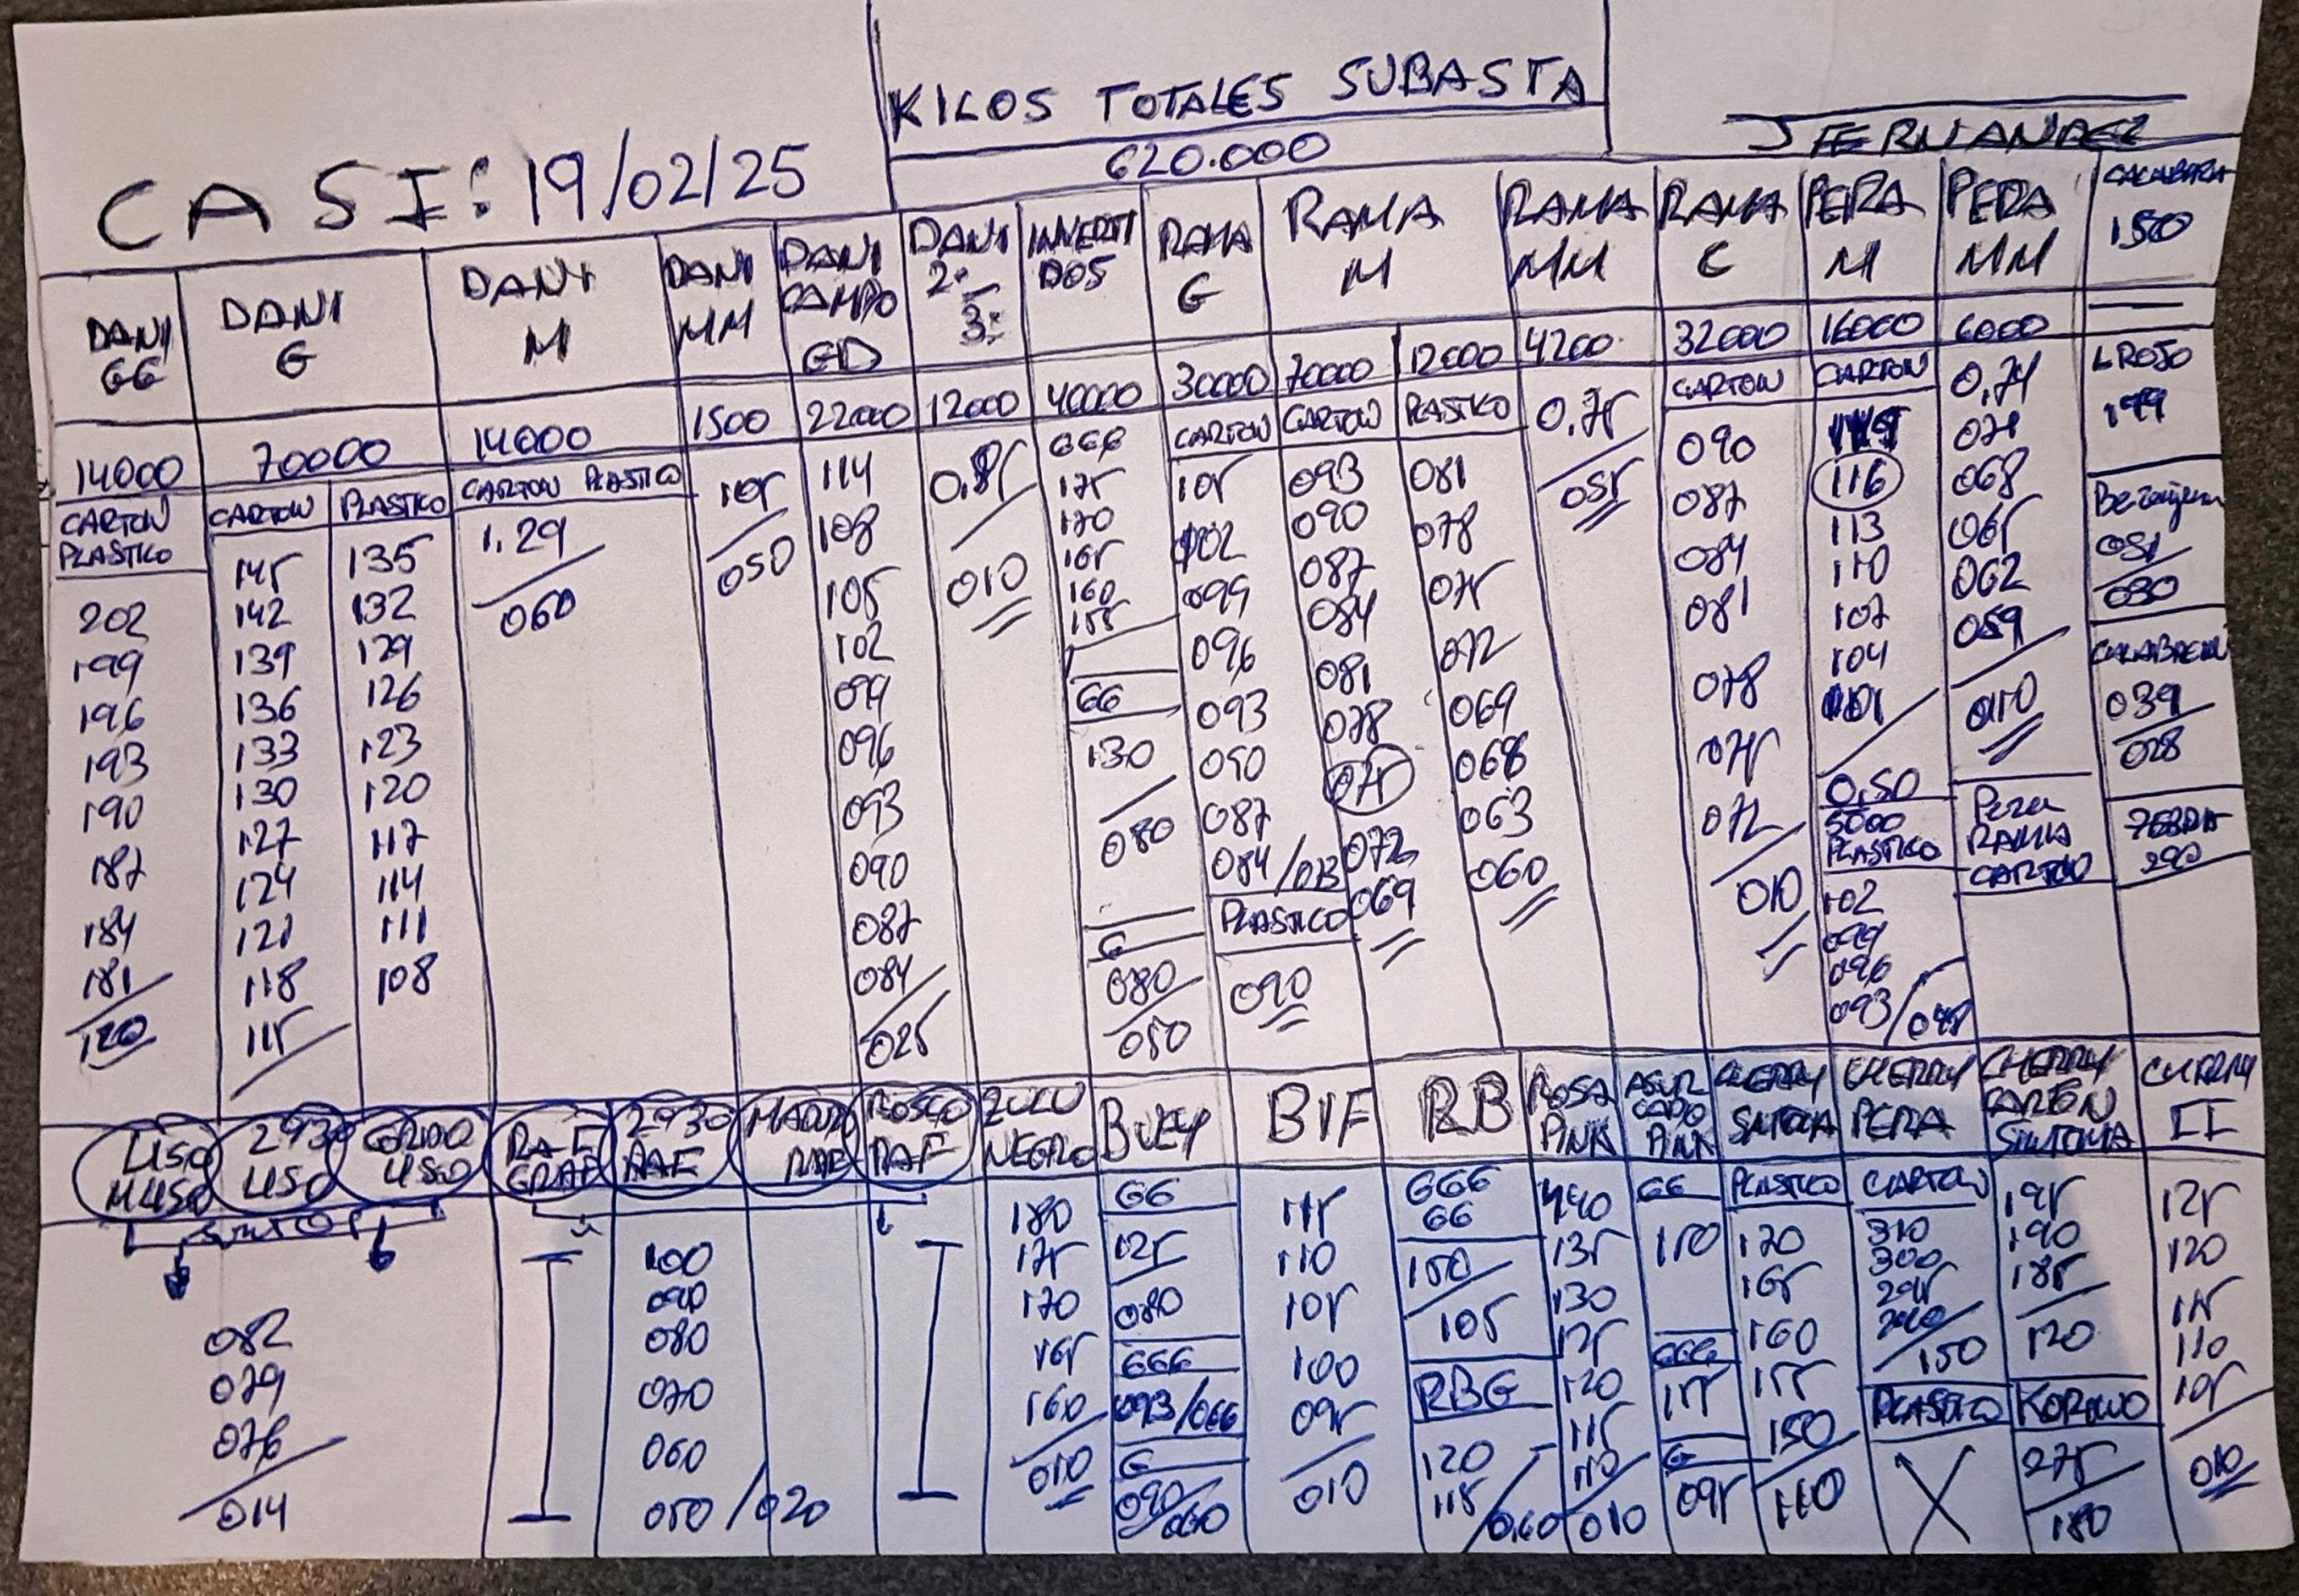 KILOS TOTALES SUBASTA
620.000
J FERNANDEZ
CASI: 19/02/25
DANI GG
14000
CARTON
PLASTICO
202
199
196
193
190
187
184
181
120
DANI G
70000
CARTON PLASTICO
145 135
142 132
139 129
136 126
133 123
130 120
127 117
124 114
121 111
118 108
115
DANI M
14000
CARTON PLASTICO
1.29
060
DANI MM
1500
105
050
DANI CAMPO GD
22000
114
108
105
102
099
096
093
090
087
084
025
DANI 2ª 3ª
12000
0,85
010
INVERTI
DOS
40000
GGG
175
170
165
160
155
GG
130
080
G
080
050
RAMA G
30000
CARTON
105
102
099
096
093
090
087
084/013
PLASTICO
090
RAMA M
70000 12000
CARTON PLASTICO
093 081
090 078
087 075
084 072
081 069
078 068
075 063
072 060
069
RAMA MM
4200
0,75
055
RAMA C
32000
CARTON
090
087
084
081
078
075
072
010
PERA M
16000
CARTON
116
113
110
107
104
101
0,50
5000
PLASTICO
102
099
096
093/048
PERA MM
6000
0,74
071
068
065
062
059
010
Pera
RAMA
CARTON
150
L ROJO
199
Berenjena
051
030
CALABACIN
039
028
290
LISO
M LISO
2930
LISO
GORDO
LISO
082
079
076
014
RAF
GRAF
2930
RAF
100
090
080
070
060
050/020
ROSCO
RAF
ZULU
NEGRO
180
175
170
165
160
010
BUEY
GG
125
080
GGG
093/066
G
090/060
BIF
115
110
105
100
095
010
RB
GGG
GG
150
105
RBG
120
115/0,60
ROSA
PINK
135
130
125
120
115
110
010
ASUR
CADO
PINK
GG
150
GGG
G
095
CHERRY
SINTONIA
PLASTICO
170
165
160
155
150
110
CHERRY
PERA
CARTON
310
300
295
290
150
PLASTICO
X
CHERRY
CARTON
SINTONIA
195
190
185
120
KORALLO
275
180
CHERRY
II
125
120
115
110
105
010